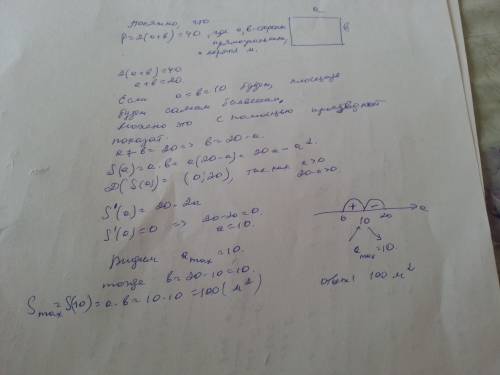 Понятно, что
P = 2(a+b) = 40, где a, b - стороны
прямоугольника,
a
b
2(a+b) = 40
a+b = 20
Если a = b = 10 будет, площадь
будет самая большая,
можно это с помощью производной
показать.
a+b = 20 => b = 20-a.
S(a) = a·b = a(20-a) = 20a - a².
D(S(a)) = (0; 20), так как a>0
20-a>0.
S'(a) = 20-2a
S'(a) = 0 => 20-2a=0.
a = 10.
+ -
0 10 20 a
a max = 10.
Видим a max = 10.
тогда b = 20-10 = 10.
S max = S(10) = a·b = 10·10 = 100 (м²)
Ответ: 100 м²